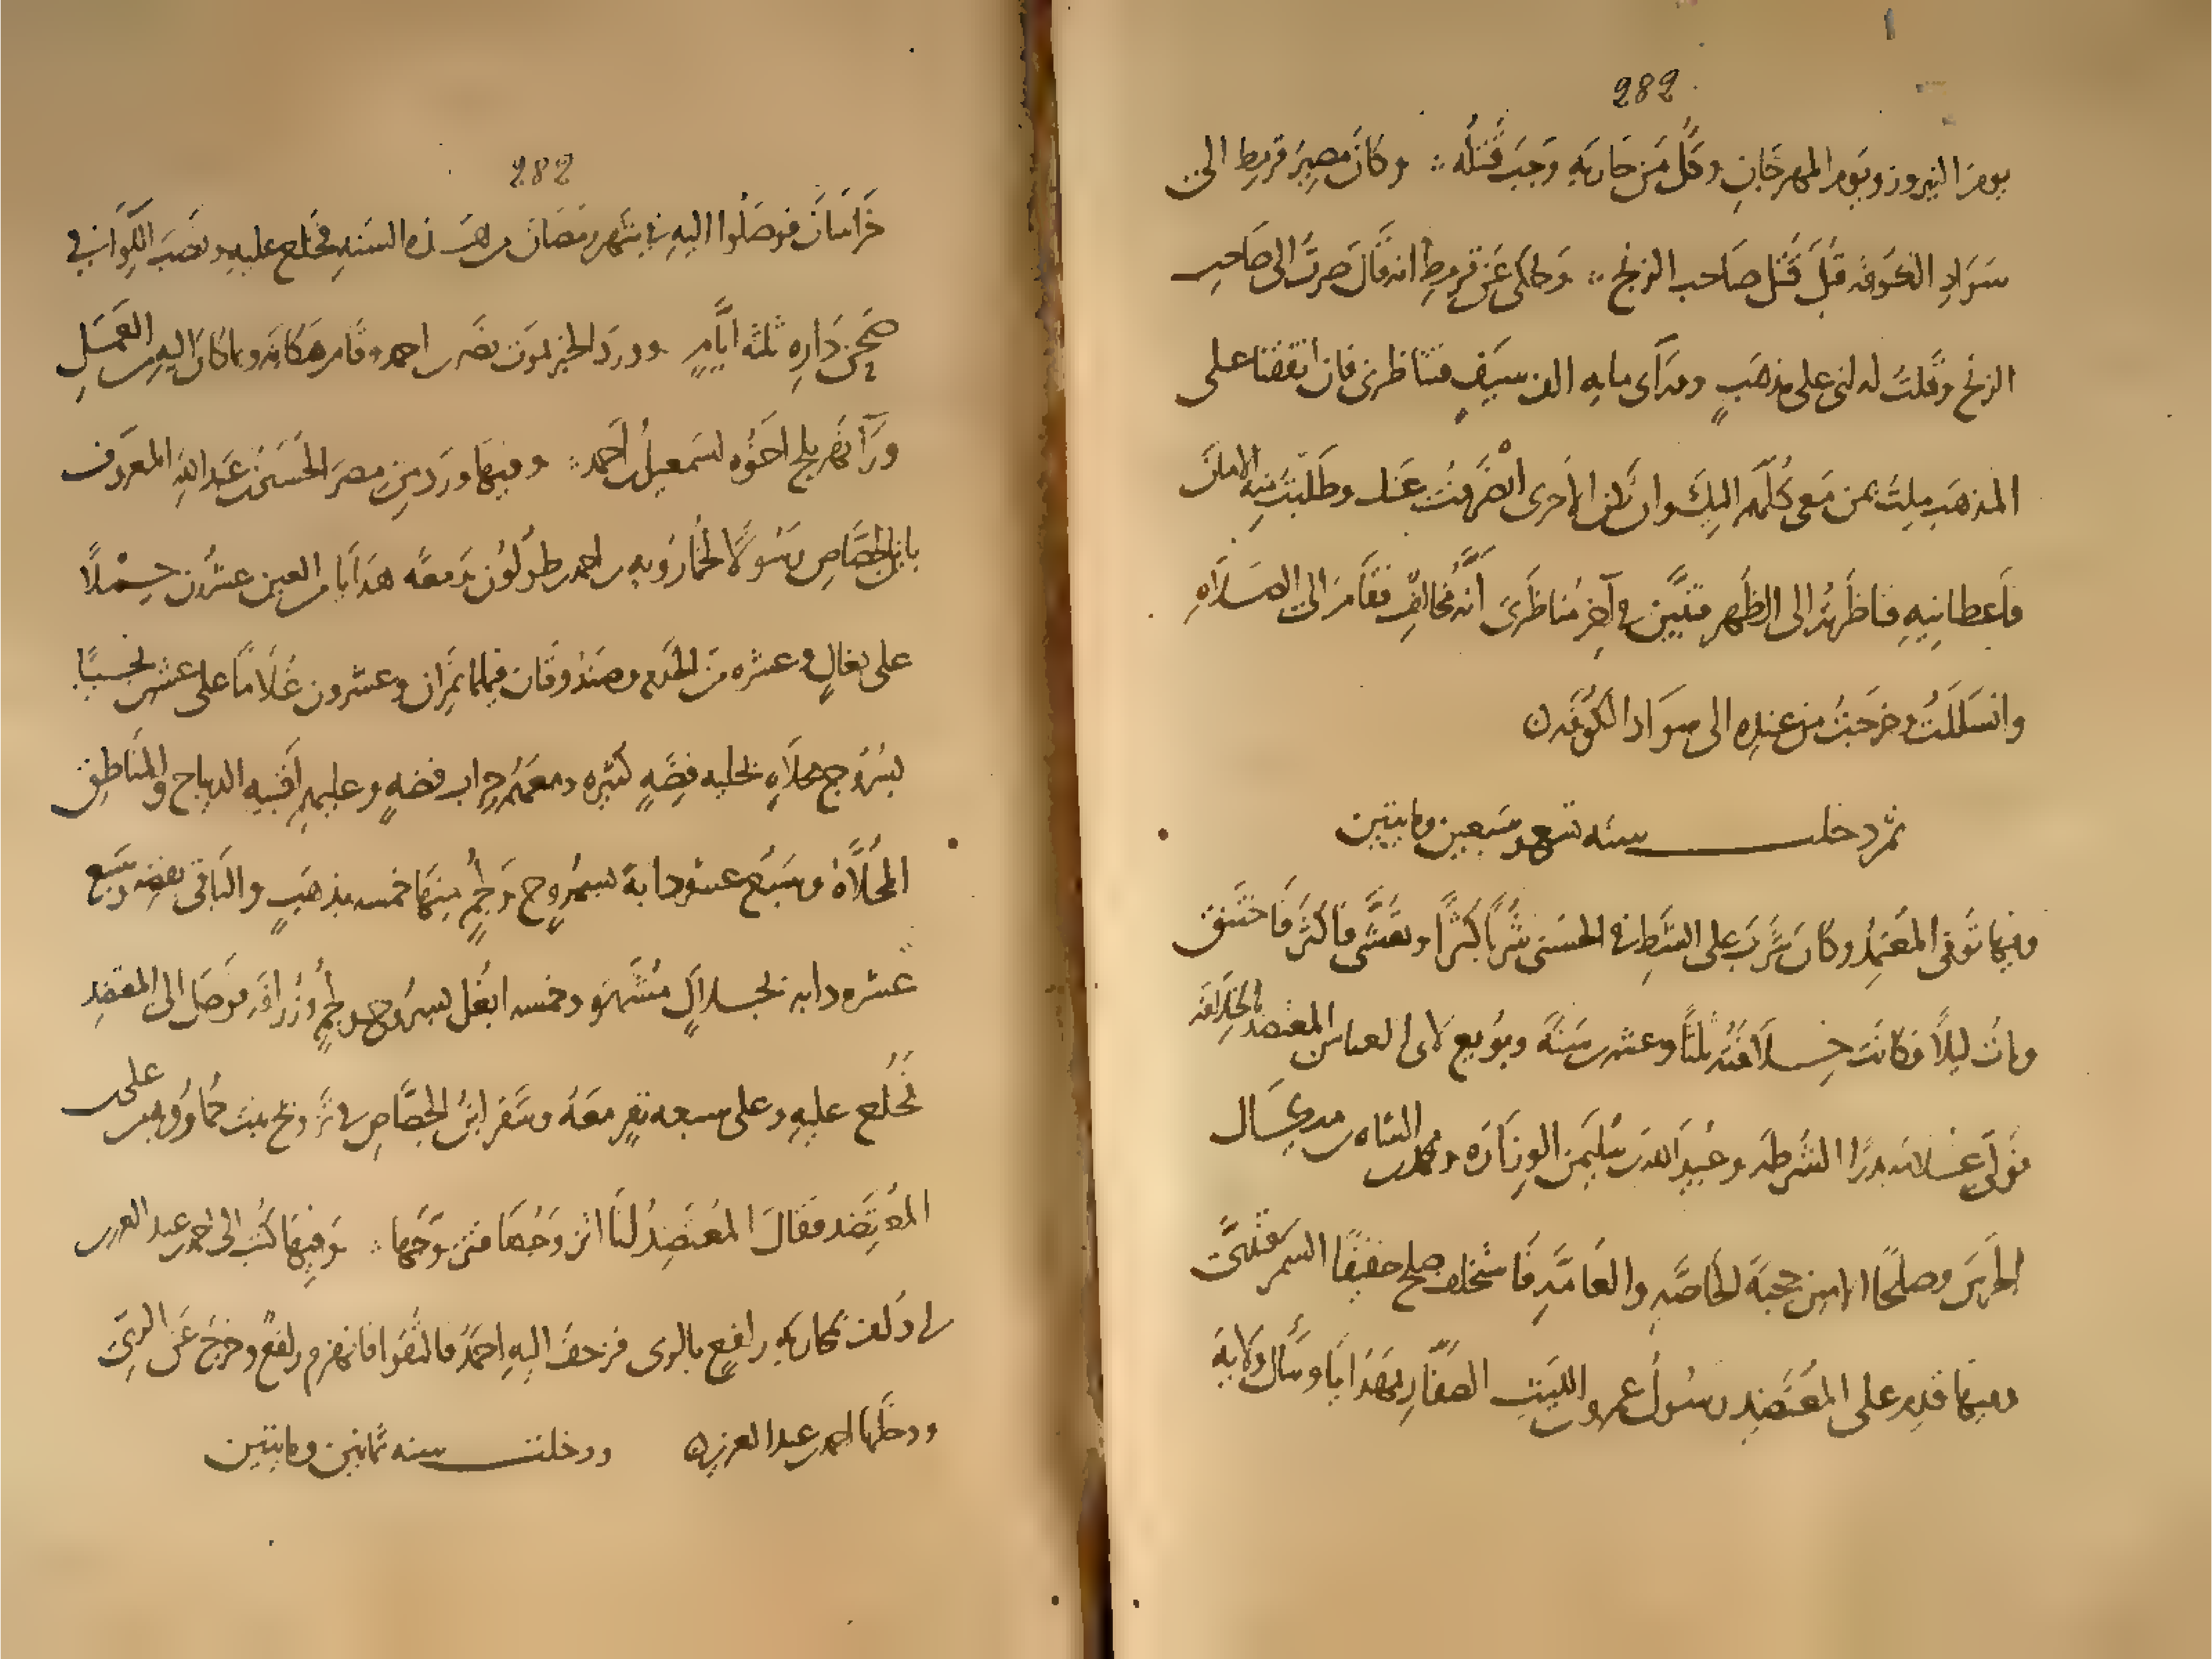 282
يوم النيروز ويوم المهرجان وقل من حاربه وجب قتله ∴ وكان مصير قرمط الى
سواد الكوفه قبل قتل صاحب الزنج ∴ وحكى عن قرمط انه قال صرت الى صاحب
الزنج وقلت له انى على مذهب وورآى مايه الف سيف فتناظرنى فان اتفقنا على
المذهب ملت بمن معى كلهم اليك وان تكن الاخرى انصرفت عنك وطلبت منه الامان
فاعطانيه فناظرته الى الظهر فتبين فى آخر مناظرتى انه مخالفى فقام الى الصلاه
وانسللت وخرجت من عنده الى سواد الكوفه
ثم دخلت سنه تسع وسبعين ومايتين
وفيها توفى المعتمد وكان شرب على الشط فى الحسنى شربا كثيرا وتعشى فاكثر فاختنق
ومات ليلا فكانت خلافته ثلثا وعشرين سنة وبويع لابى العباس المعتضد بالخلافه
فولى غلامه بدرا الشرطه وعبيد الله بن سليمن الوزاره ومحمد بن الشاه بن ميكال
الحرس وصلحا الامين حجبة الخاصه والعامه فاستخلف صلح خفيفا السمرقندى
وفيها قدم على المعتضد رسول عمرو بن الليث الصفار بهدايا وسأل ولاية
282
خراسان فوصلوا اليه فى شهر رمضان من هذه السنه فخلع عليه ونصب اللوآ فى
صحن داره ثلثه ايام وورد الخبر بموت نصر بن احمد وقام مكانه وما كان اليه من العمل
ورآ نهر بلخ اخوه اسمعيل بن احمد ∴ وفيها ورد من مصر الحسين بن عبد الله المعروف
بابن الجصاص رسولا لخمارويه بن احمد بن طولون ومعه هدايا من العين عشرون حملا
على بغال وعشره من الخدم وصندوقان فيهما تمران وعشرون غلاما على عشرين نجيبا
بسروج محلاه بحليه فضه كثيره ومعهم حراب فضه وعليهم اقبيه الديباج والمناطق
المحلاة وسبع عشر دابة بسروج ولجم منها خمسه بذهب والباقى بفضه وسبع
عشره دابه بجلال مشهره وخمسه ابغل بسروج ولجم وزرافه فوصل الى المعتضد
فخلع عليه وعلى سبعه نفر معه وسفر ابن الجصاص فى تزويج بنت خمارويه من على بن
المعتضد فقال المعتضد انا اتزوجها فتزوجها ∴ وفيها كتب الى احمد بن عبد العزيز بن
ابى دلف بمحاربه رافع بالرى فزحف اليه احمد فالتقوا فانهزم رافع وخرج عن الرى
ودخلها احمد بن عبد العزيز ودخلت سنه ثمانين ومايتين